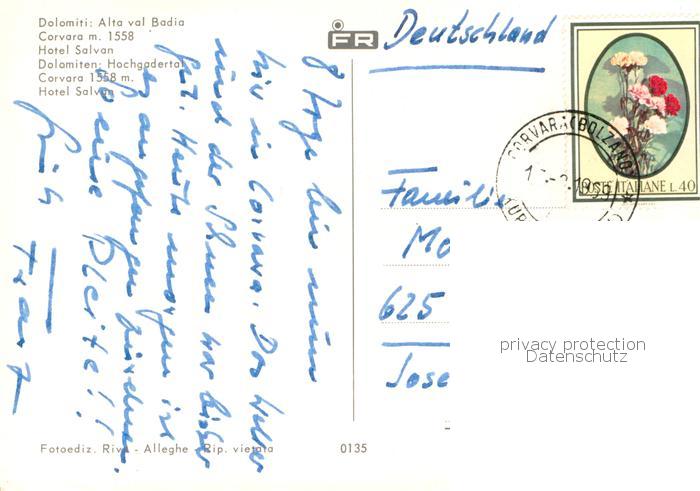 Dolomiti: Alta val Badia
Corvara m. 1558
Hotel Salvan
Dolomiten: Hochgadertal
Corvara 1558 m.
Hotel Salvan
FR
Deutschland
POSTE ITALIANE L.40
CORVARA (BOLZANO)
Familie
Mo
625
Jose
privacy protection
Datenschutz
8 Tage bin nun
hier in Corvara. Das Wetter
und der Schnee war bisher
gut. Heute morgen ist
es
Pleite!!
Franz
Fotoediz. Riva - Alleghe - Rip. vietata
0135